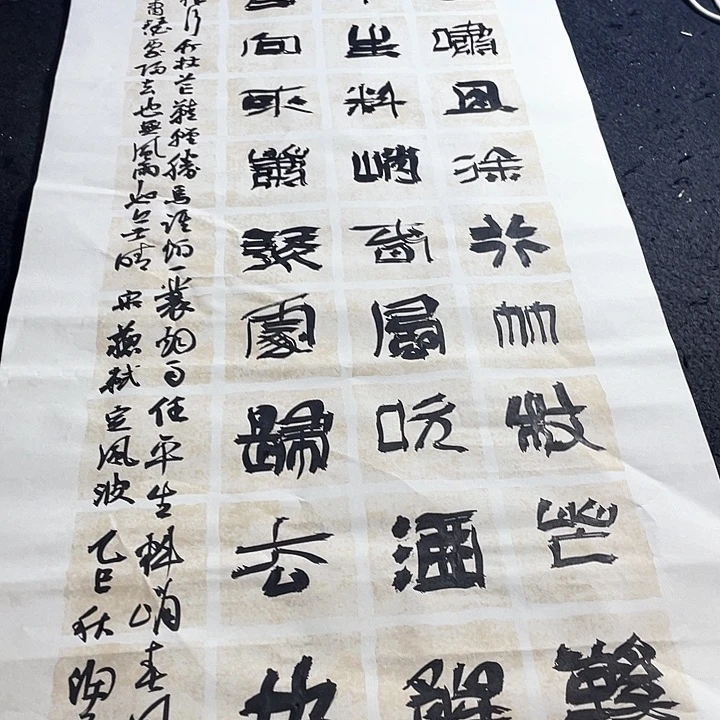 嘯且徐行竹杖芒鞋
生料峭春風吹酒醒
向來蕭瑟處歸去也
行竹杖芒鞋輕勝馬誰怕一蓑烟雨任平生料峭春風
蕭瑟處歸去也無風雨也無晴 宋蘇軾定風波 乙巳秋